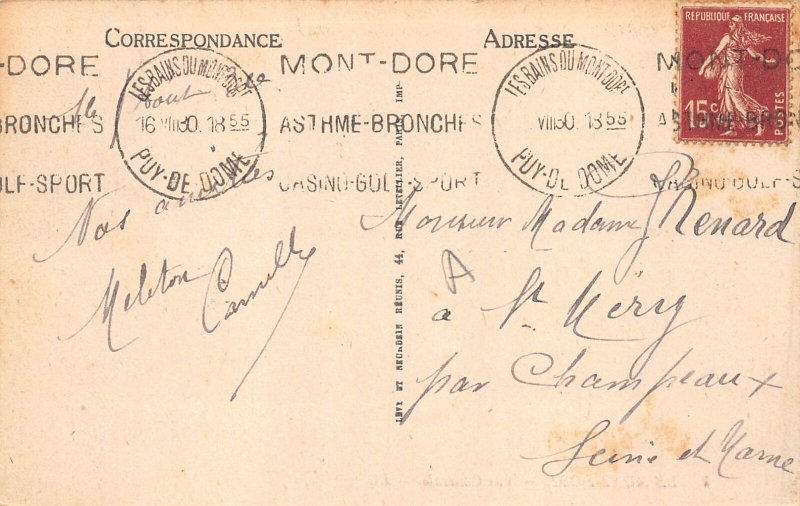 CORRESPONDANCE
ADRESSE
MONT-DORE
ASTHME-BRONCHES
CASINO-GOLF-SPORT
LES BAINS DU MONT DORE
16 VIII 30. 18 55
PUY-DE DOME
-DORE
BRONCHES
OLF-SPORT
LES BAINS DU MONT DORE
VIII 30. 18 55
PUY-DE DOME
MONT-DO
ASTHME-BRON
CASINO-GOLF-S
REPUBLIQUE FRANÇAISE
15c
POSTES
le Aout
Nos amitiés
Meleton Camille
LEVY ET NEURDEIN RÉUNIS, 44, RUE LETELLIER, PARIS IMP.
Monsieur Madame Renard
A
a St Méry
par Champeaux
Seine et Marne